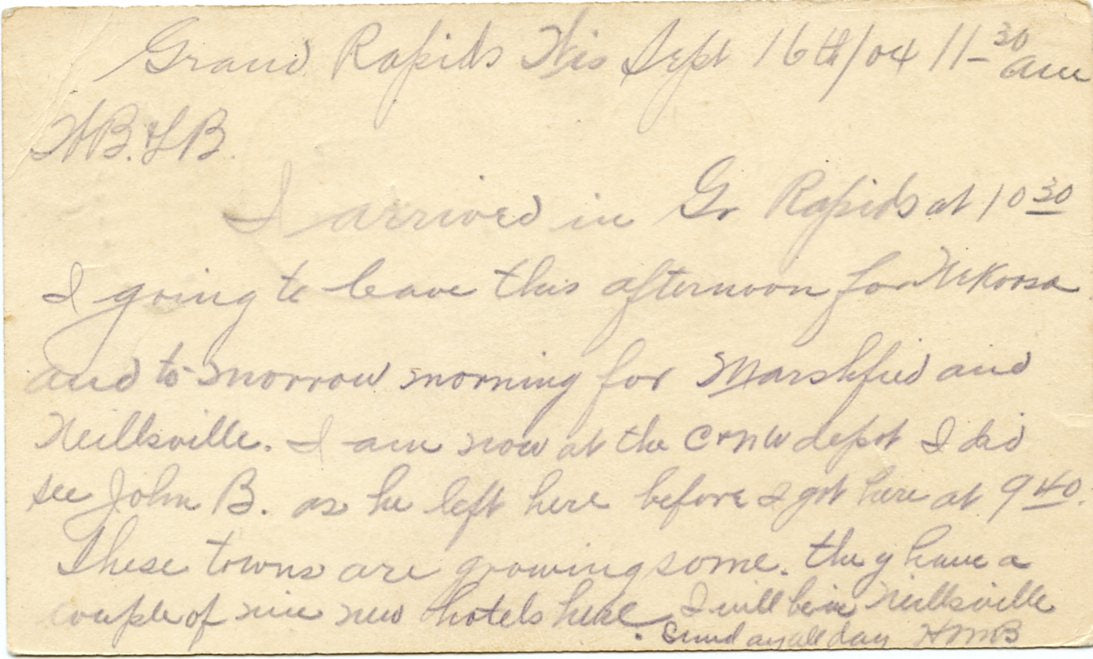 Grand Rapids Wis Sept 16th/04 11-30 am
I arrived in Gr Rapids at 10 30
I going to leave this afternoon for Nekoosa
and to-morrow morning for Marshfied and
Neillsville. I am now at the C&NW depot I did
see John B. as he left here before I got here at 9 40.
These towns are growing some. they have a
couple of nice new hotels here. I will be in Neillsville
Sunday all day HMB